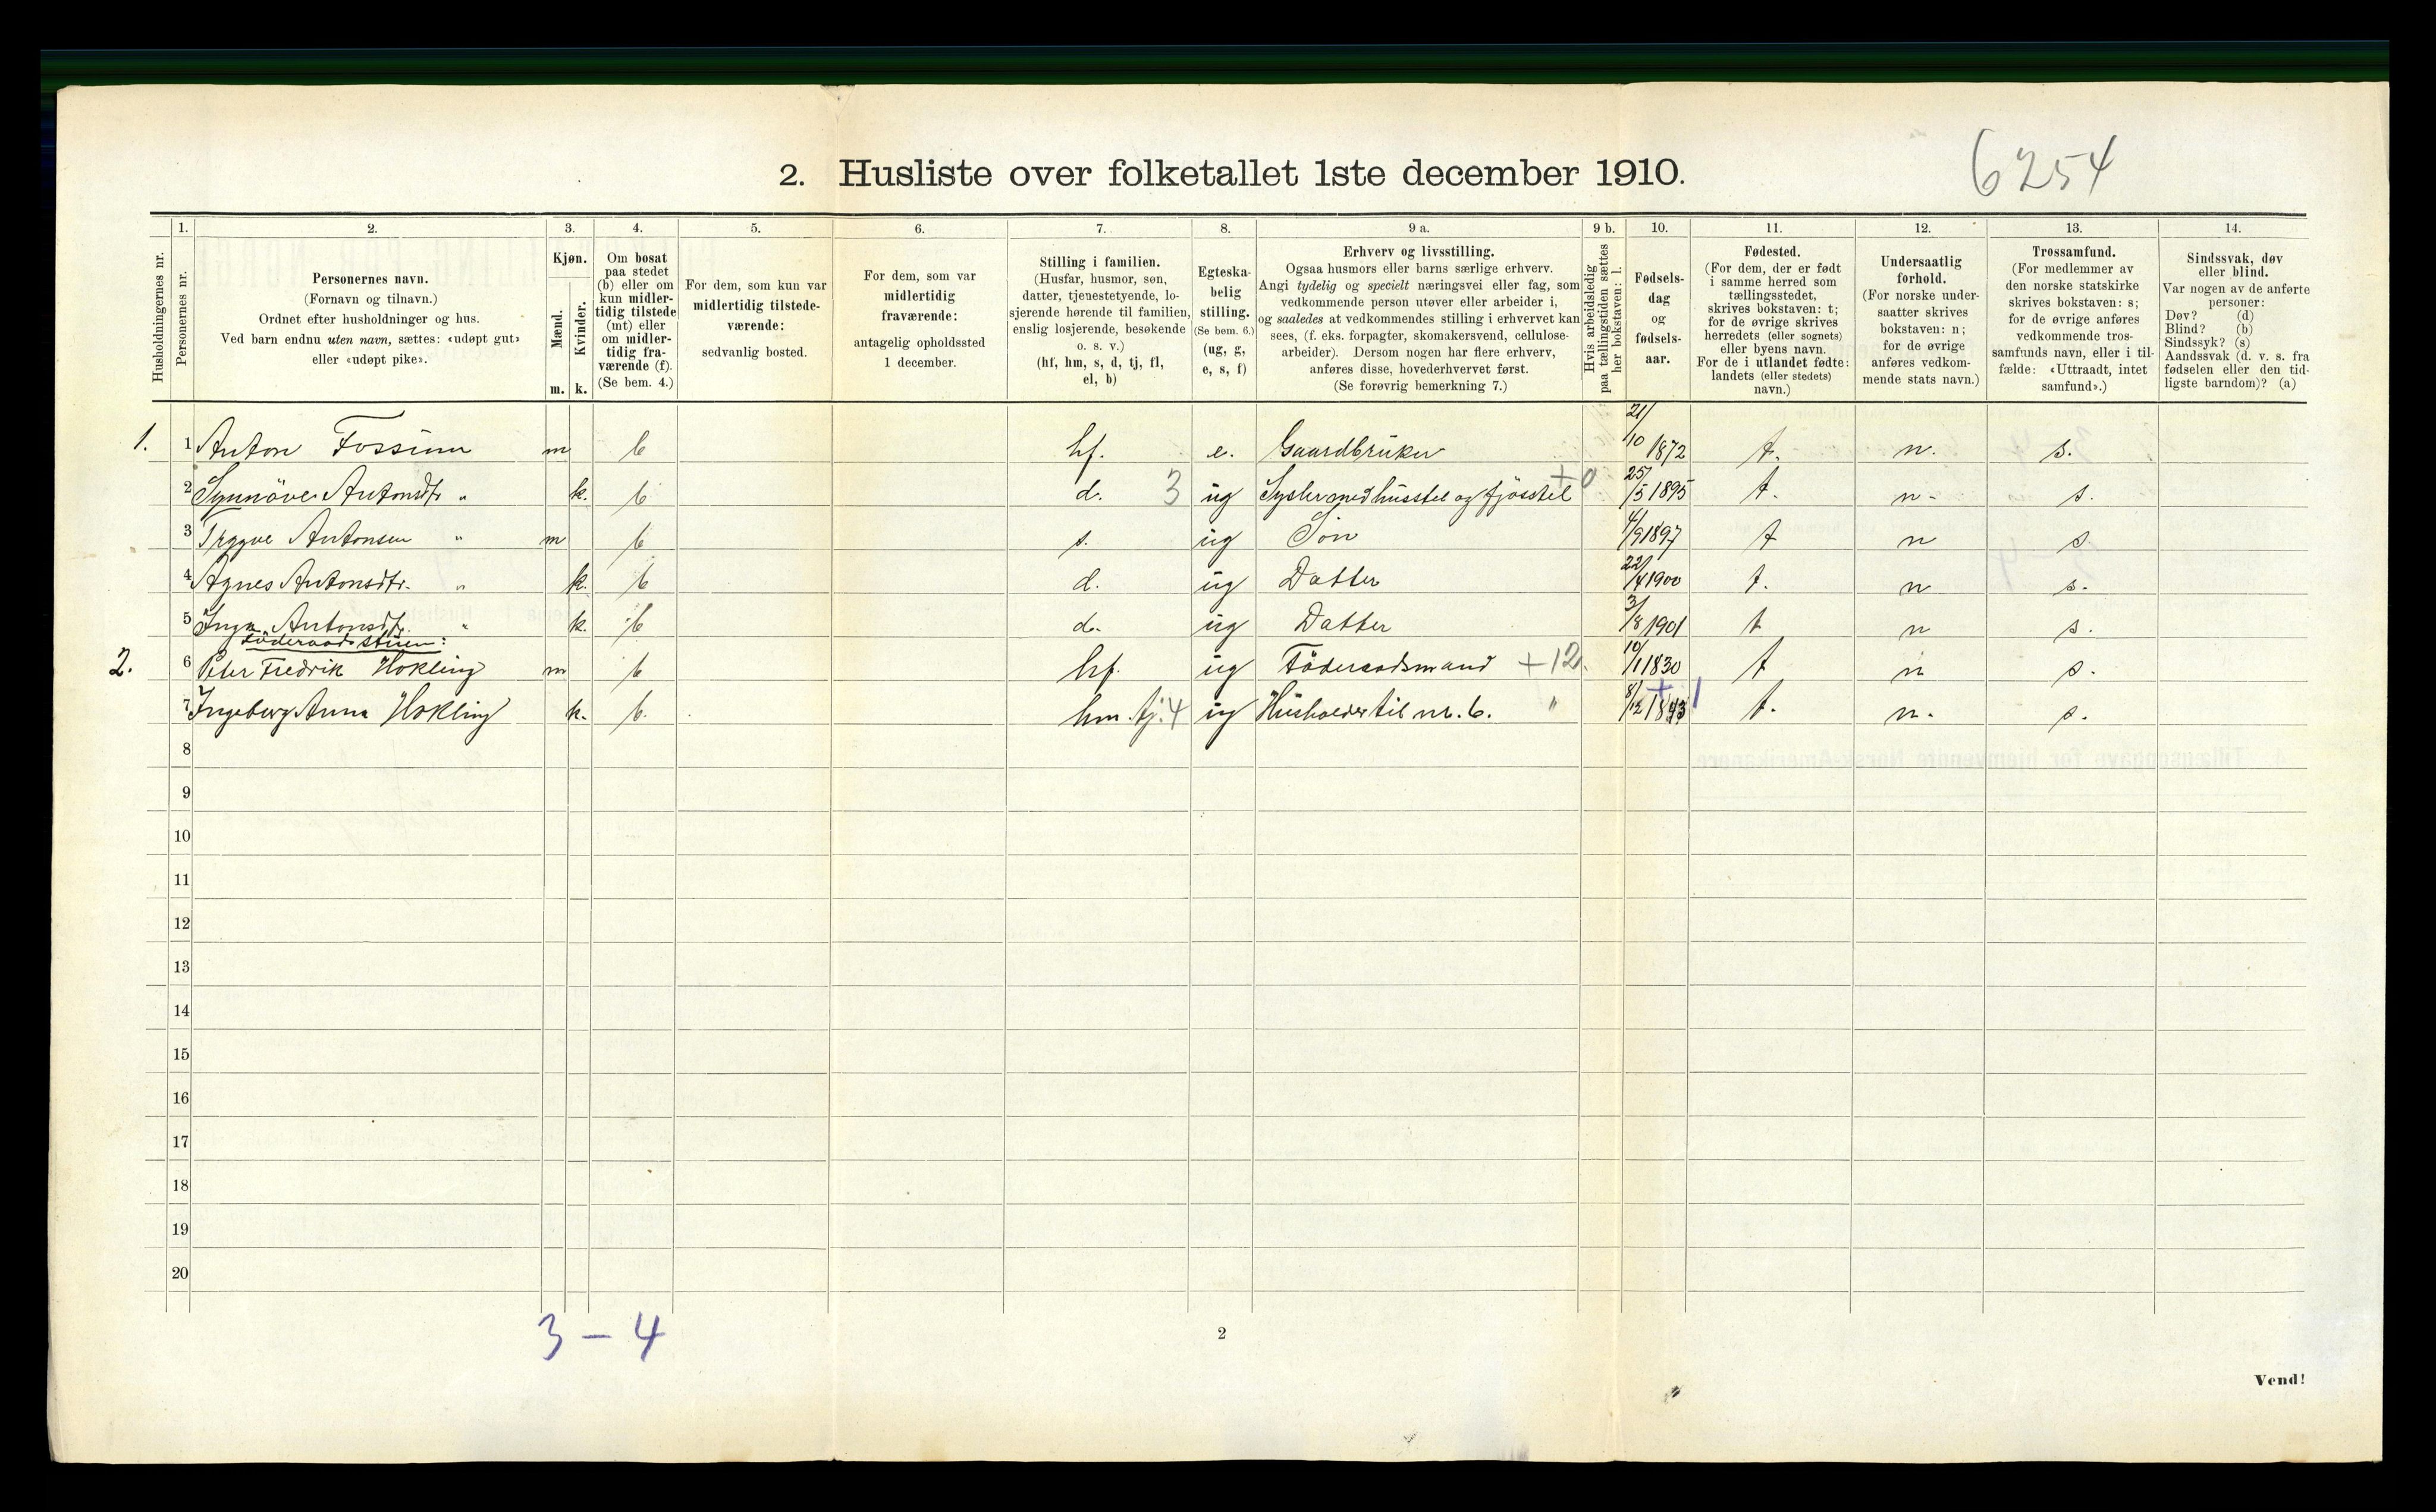 6254
2. Husliste over folketallet 1ste december 1910.
Husholdningernes nr.
1.
Personernes nr.
2.
Personernes navn.
(Fornavn og tilnavn.)
Ordnet efter husholdninger og hus.
Ved barn endnu uten navn, sættes: «udøpt gut»
eller «udøpt pike».
3.
Kjøn.
Mænd.
Kvinder.
m. k.
4.
Om bosat
paa stedet
(b) eller om
kun midler-
tidig tilstede
(mt) eller
om midler-
tidig fra-
værende (f).
(Se bem. 4.)
5.
For dem, som kun var
midlertidig tilstede-
værende:
sedvanlig bosted.
6.
For dem, som var
midlertidig
fraværende:
antagelig opholdssted
1 december.
7.
Stilling i familien.
(Husfar, husmor, søn,
datter, tjenestetyende, lo-
sjerende hørende til familien,
enslig losjerende, besøkende
o. s. v.)
(hf, hm, s, d, tj, fl,
el, b)
8.
Egteska-
belig
stilling.
(Se bem. 6.)
(ug, g,
e, s, f)
9 a.
Erhverv og livsstilling.
Ogsaa husmors eller barns særlige erhverv.
Angi tydelig og specielt næringsvei eller fag, som
vedkommende person utøver eller arbeider i,
og saaledes at vedkommendes stilling i erhvervet kan
sees, (f. eks. forpagter, skomakersvend, cellulose-
arbeider). Dersom nogen har flere erhverv,
anføres disse, hovederhvervet først.
(Se forøvrig bemerkning 7.)
9 b.
Hvis arbeidsledig
paa tællingstiden sættes
her bokstaven: l.
10.
Fødsels-
dag
og
fødsels-
aar.
11.
Fødested.
(For dem, der er født
i samme herred som
tællingsstedet,
skrives bokstaven: t;
for de øvrige skrives
herredets (eller sognets)
eller byens navn.
For de i utlandet fødte:
landets (eller stedets)
navn.)
12.
Undersaatlig
forhold.
(For norske under-
saatter skrives
bokstaven: n;
for de øvrige
anføres vedkom-
mende stats navn.)
13.
Trossamfund.
(For medlemmer av
den norske statskirke
skrives bokstaven: s;
for de øvrige anføres
vedkommende tros-
samfunds navn, eller i til-
fælde: «Uttraadt, intet
samfund».)
14.
Sindssvak, døv
eller blind.
Var nogen av de anførte
personer:
Døv? (d)
Blind? (b)
Sindssyk? (s)
Aandssvak (d. v. s. fra
fødselen eller den tid-
ligste barndom)? (a)
1. 1 Anton Fossum m b hf. e. Gaardbruker 21/10 1872 t. n. s.
2 Synnöve Antonsdtr " k. b d. 3 ug Sysler med husstel og fjösstel +0 25/5 1895 t. n. s.
3 Trygve Antonsen " m b s. ug Sön 4/9 1897 t n s
4 Agnes Antonsdtr. " k. b d. ug Datter 22/4 1900 t. n s.
5 Inga Antonsdtr. " k. b d. ug Datter 3/8 1901 t n s.
Föderaadsstuen:
2. 6 Peter Fredrik Hokling m b hf. ug Föderaadsmand +12. 10/1 1830 t n s.
7 Ingeborg Anna Hokling k. b. hm tj. 4 ug Husholder til nr. 6. " 8/12 1843 +1 t. n. s.
8
9
10
11
12
13
14
15
16
17
18
19
20
3 – 4
2
Vend!